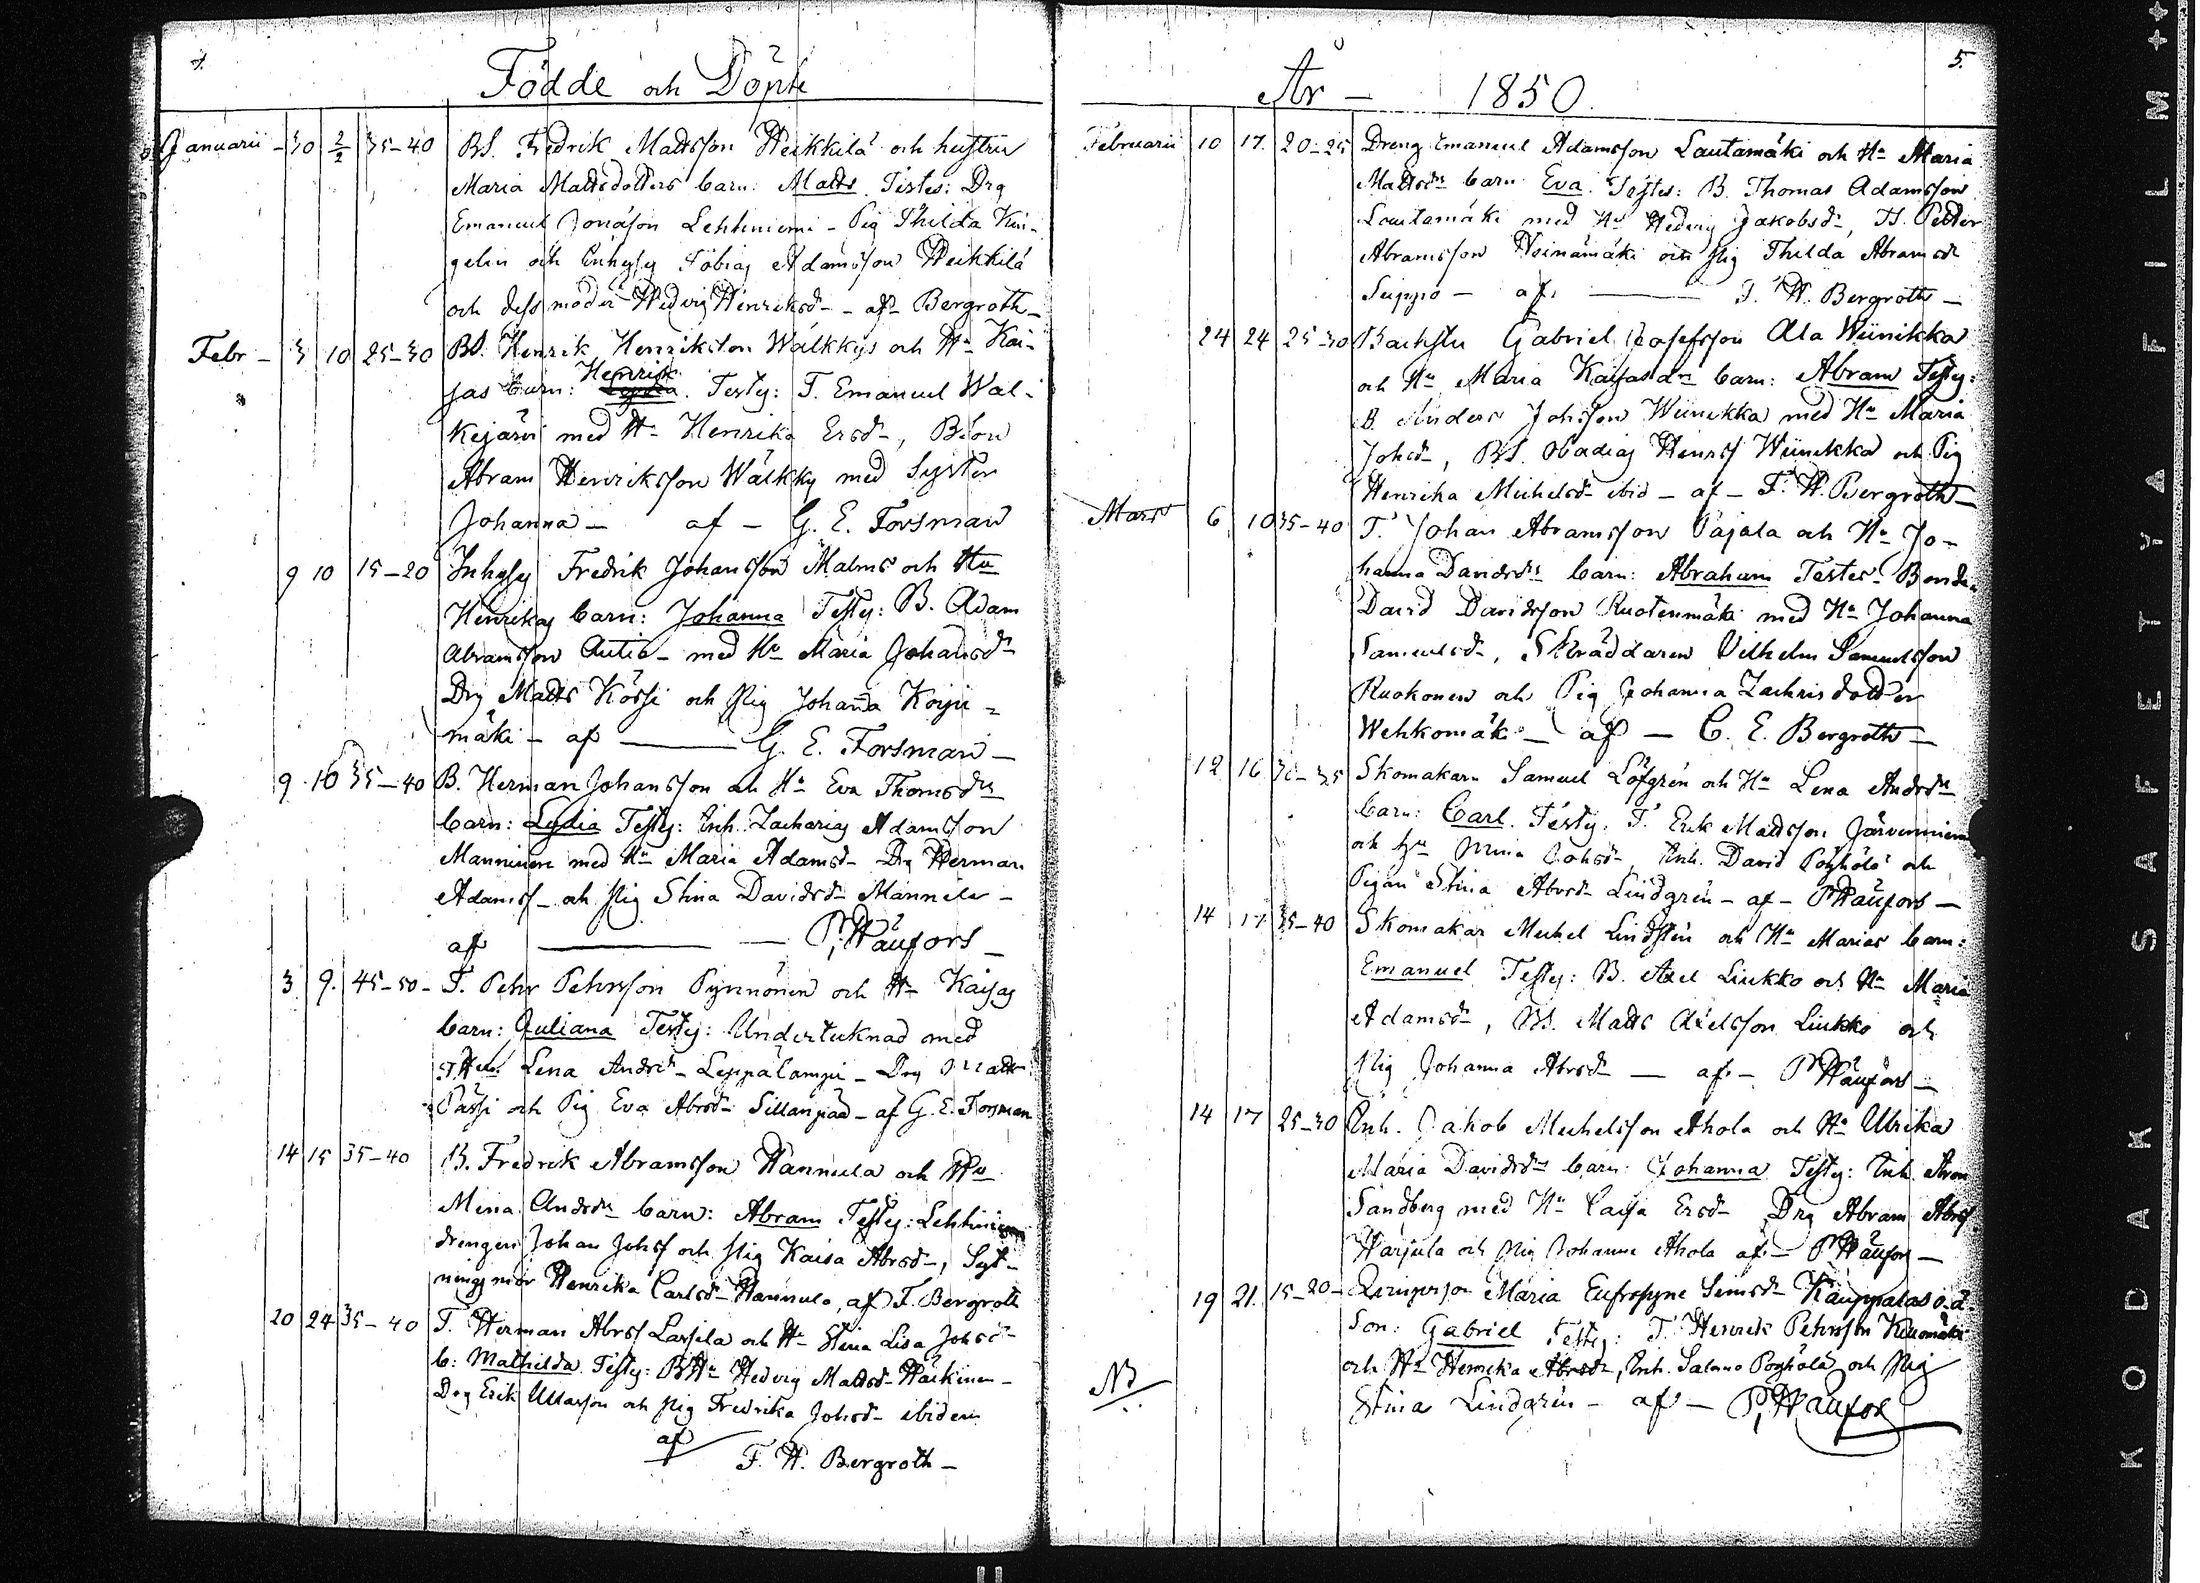 4.
Födde och Döpte
Januarii - 30 2/2 35-40 BS. Fredrik Mattsson Heikkilä och hustru
Maria Mattsdotters barn: Matts Testes: Drg
Emanuel Jonasson Lehtiniemi - Pig Thilda Kin-
gelin och Enhysg Tobias Adamsson Heikkilä
och dess moder Hedvig Henriksd - af Bergroth -
Febr - 3 10 25-30 BS. Henrik Henriksson Wälkkys och Hu Kai-
jas barn: Henrik. Testes: T. Emanuel Wal-
kejärvi med Hu Henrika Ersd -, B:son
Abram Henriksson Wälkky med Syster
Johanna - af - G. E. Forsman
9 10 15-20 Inhysg Fredrik Johansson Malms och Hu
Henrikas barn: Johanna Testes: B. Adam
Abramsson Antila - med Hu Maria Johansdr
Drg Matts Kössi och Pig Johanna Koipi-
mäki - af - G. E. Forsman -
9 10 35-40 B. Herman Johansson och Hu Eva Thomsdrs
barn: Lydia Testes: Inh. Zacharias Adamsson
Manninen med Hu Maria Adamsd - Drg Herman
Adamss - och Pig Stina Davidsdr Mannila -
af - P. Häufors -
3 9. 45-50 - T. Pehr Pehrsson Pynnönen och Hu Kaisas
barn: Juliana Testes: Undertecknad med
Lena Andrsdr - Leppälampi - Drg Matts
Passi och Pig Eva Abrsdr Sillanpää - af G. E. Forsman
14 15 35-40 B. Fredrik Abramsson Hannula och Hu
Mina Andrsdrs barn: Abram Testes: Lehtiniemi
drengen Johan Johss och Pig Kaisa Abrsd -, Syt-
ningsmor Henrika Carlsdr Hannula, af F. Bergroth
20 24 35-40 T. Herman Abrss Lassila och Hu Stina Lisa Johsdr
b: Mathilda Testes: BHu Hedvig Mattsd - Häkkinen -
Drg Erik Mattsson och Pig Fredrika Johsd - ibidem
af
F. H. Bergroth -
5.
År - 1850.
Februarii 10 17. 20-25 Dreng Emanuel Adamsson Lautamäki och Hu Maria
Mattsdrs barn Eva. Testes: B. Thomas Adamsson
Lautamäki med Hu Hedvig Jakobsdr, Petter
Abramsson Heinämäki och Pig Thilda Abramsdr
Seppä - af - F. H. Bergroth -
24 24 25-30 Gabriel Josefsson Ala Wiinikka
och Hu Maria Kaisasdrs barn: Abram Testes:
B. Anders Johsson Wiinikka med Hu Maria
Johsd -, BS. Obadias Henrss Wiinikka och Pig
Henrika Michelsd - ibid - af - F. H. Bergroth -
Mars 6 10 35-40 T. Johan Abramsson Pajala och Hu Jo-
hanna Davidsdrs barn: Abraham Testes - Bonden
David Davidsson Ruotenmäki med Hu Johanna
Samuelsdr, Skräddaren Vilhelm Samuelsson
Ruokonen och Pig Johanna Zachrisdotter
Wehkomäki - af - C. E. Bergroth -
12 16 30-35 Skomakarn Samuel Löfgrén och Hu Lena Andrsdrs
barn: Carl. Testes: T. Erik Mattsson Järvenniemi
och Hu Mina Johsdr, Inh. David Poyhölä och
Pigan Stina Abrsdr Lindgrén - af - P Häufors -
14 17 35-40 Skomakar Michel Lindstén och Hu Marias barn:
Emanuel Testes: B. Axel Liukko och Hu Maria
Adamsdr, BS. Matts Axelsson Liukko och
Pig Johanna Abrsdr - af - P Häufors -
14 17 25-30 Inh. Jakob Michelsson Ahola och Hu Ulrika
Maria Davidsdrs barn: Johanna Testes: Inh. Aron
Sandberg med Hu Caisa Ersdr Drg Abram Abrss
Harjula och Pig Johanna Ahola af - P Häufors -
19 21. 15-20 - Qvinsperson Maria Eufrosyne Simsdr Kauppalas o.ä
Son: Gabriel Testes: T. Henrik Pehrsson
och Hu Henrika Abrsdr, Inh. Salomo Poyhölä och Pig
Nd
Stina Lindgrén - af - P. Häufors
KODAK · SAFETY A FILM ++